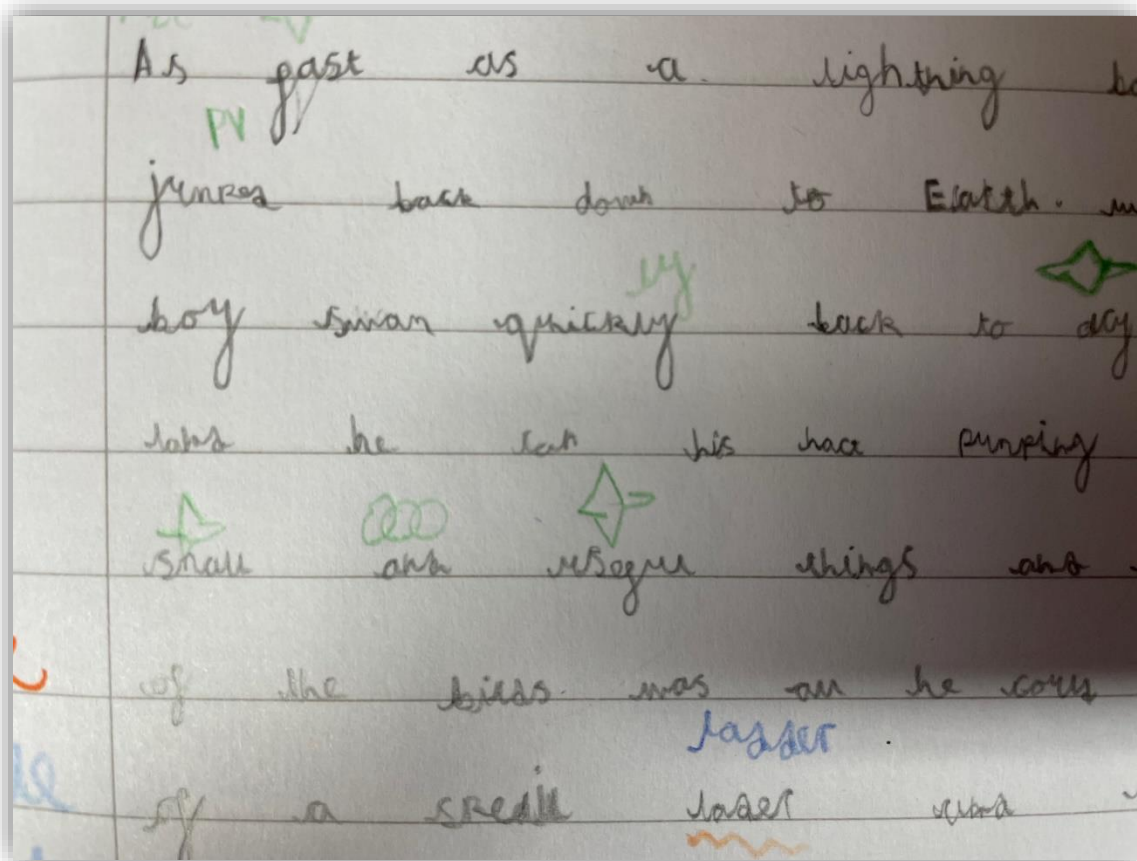 As fast as a lightning
PV
jumped back down to Earth.
ly
boy swam quickly back to dry
land he ran his hart pumping
small and usefull things and
of the birds was all he coul
ladder
of a lader